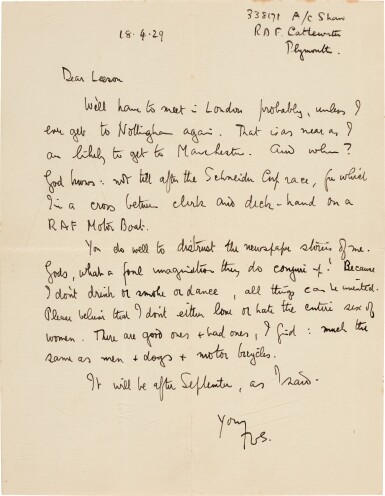 338171 A/C Shaw
18.4.29 RAF. Cattewater
Plymouth.
Dear Leeson
We'll have to meet in London probably, unless I
ever get to Nottingham again. That is as near as I
am likely to get to Manchester. And when?
God knows: not till after the Schneider Cup race, for which
I'm a cross between clerk and deck-hand on a
RAF Motor Boat.
You do well to distrust the newspaper stories of me.
Gods, what a foul imagination they do conjure up! Because
I don't drink or smoke or dance, all things can be invented.
Please believe that I don't either love or hate the entire sex of
women. There are good ones + bad ones, I find: much the
same as men + dogs + motor bicycles.
It will be after September, as I said.
Yours
TES.